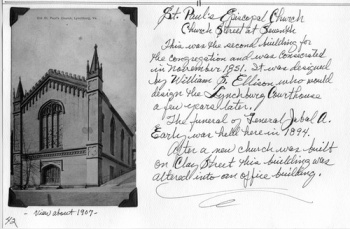 Old St. Paul's Church, Lynchburg, Va.
St. Paul's Episcopal Church
Church Street at Seventh
This was the second building for
the congregation and was consecrated
in November 1851. It was designed
by William S. Ellison who would
design the Lynchburg Courthouse
a few years later.
The funeral of General Jubal A.
Early was held here in 1894.
After a new church was built
on Clay Street this building was
altered into an office building.
- View about 1907 -